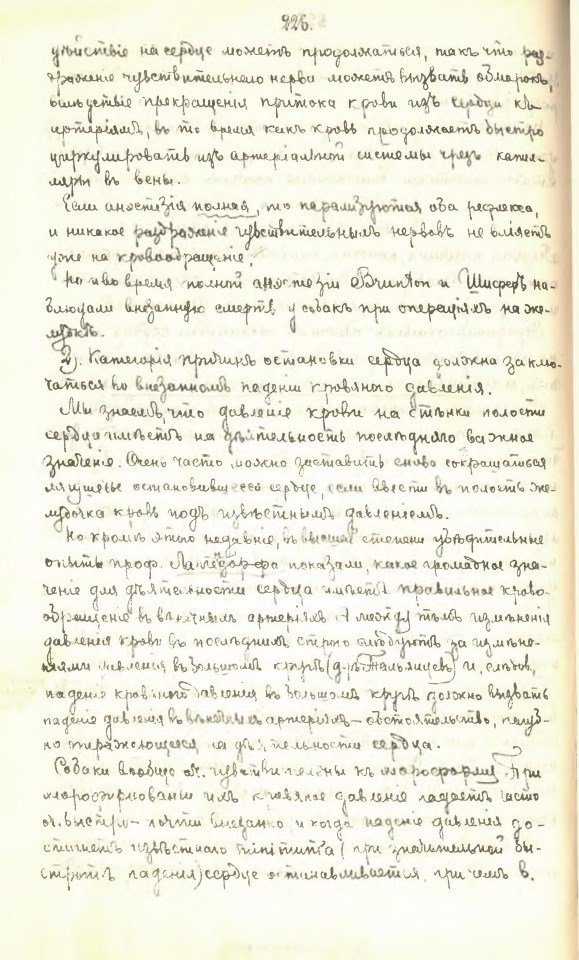 226.
дѣйствіе на сердце можетъ продолжаться, такъ что раз-
драженіе чувствительнаго нерва можетъ вызвать обморокъ,
вслѣдствіе прекращенія притока крови изъ сердца къ
артеріямъ, въ то время какъ кровь продолжаетъ быстро
циркулировать изъ артеріальной системы чрезъ капил-
ляры въ вены.
Если анэстезія полная, то парализуются оба рефлекса,
и никакое раздраженіе чувствительныхъ нервовъ не вліяетъ
уже на кровообращеніе.
Но и во время полной анэстезіи Brunton и Шифферъ на-
блюдали внезапную смерть у собакъ при операціяхъ на же-
лудкѣ.
2). Категорія причинъ остановки сердца должна заклю-
чаться во внезапномъ паденіи кровяного давленія.
Мы знаемъ, что давленіе крови на стѣнки полости
сердца имѣетъ на дѣятельность послѣдняго важное
значеніе. Очень часто можно заставить снова сокращаться
лягушечье остановившееся сердце, если ввести въ полость же-
лудочка кровь подъ извѣстнымъ давленіемъ.
Но кромѣ этого недавніе, въ высшей степени убѣдительные
опыты проф. Лангендорфа показали, какое громадное зна-
ченіе для дѣятельности сердца имѣетъ правильное крово-
обращеніе въ вѣнечныхъ артеріяхъ. А между тѣмъ измѣненія
давленія крови въ послѣднихъ строго слѣдуютъ за измѣне-
ніями давленія въ большомъ кругѣ (д-ръ Пальянцевъ) и, слѣдов.,
паденіе кровяного давленія въ большомъ кругѣ должно вызвать
паденіе давленія въ вѣнечныхъ артеріяхъ — обстоятельство, пагуб-
но отражающееся на дѣятельности сердца.
Собаки вообще оч. чувствительны къ хлороформу. При
хлороформированіи ихъ кровяное давленіе падаетъ часто
оч. быстро — почти внезапно и когда паденіе давленія до-
стигнетъ извѣстнаго minimum'а (при значительной бы-
стротѣ паденія) сердце останавливается, при чемъ в.